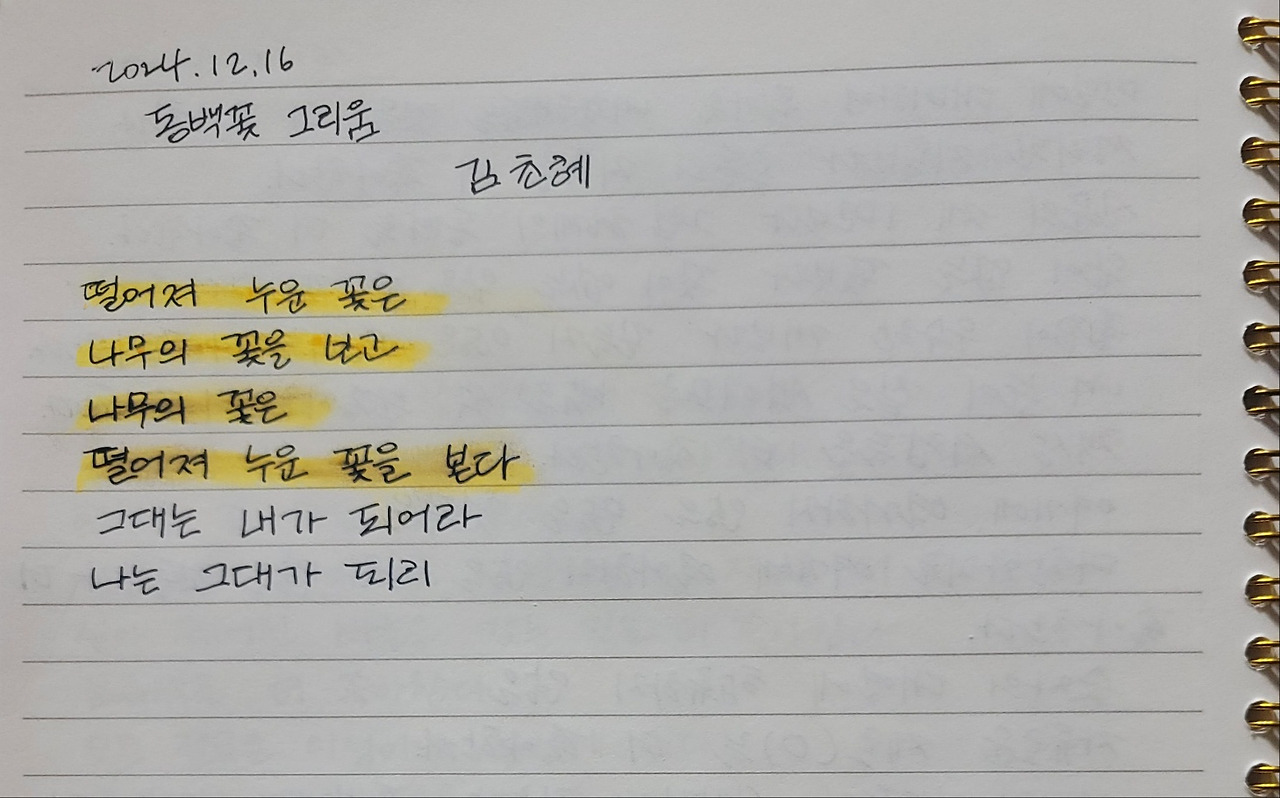 2024.12.16
동백꽃 그리움
김초혜
떨어져 누운 꽃은
나무의 꽃을 보고
나무의 꽃은
떨어져 누운 꽃을 본다
그대는 내가 되어라
나는 그대가 되리